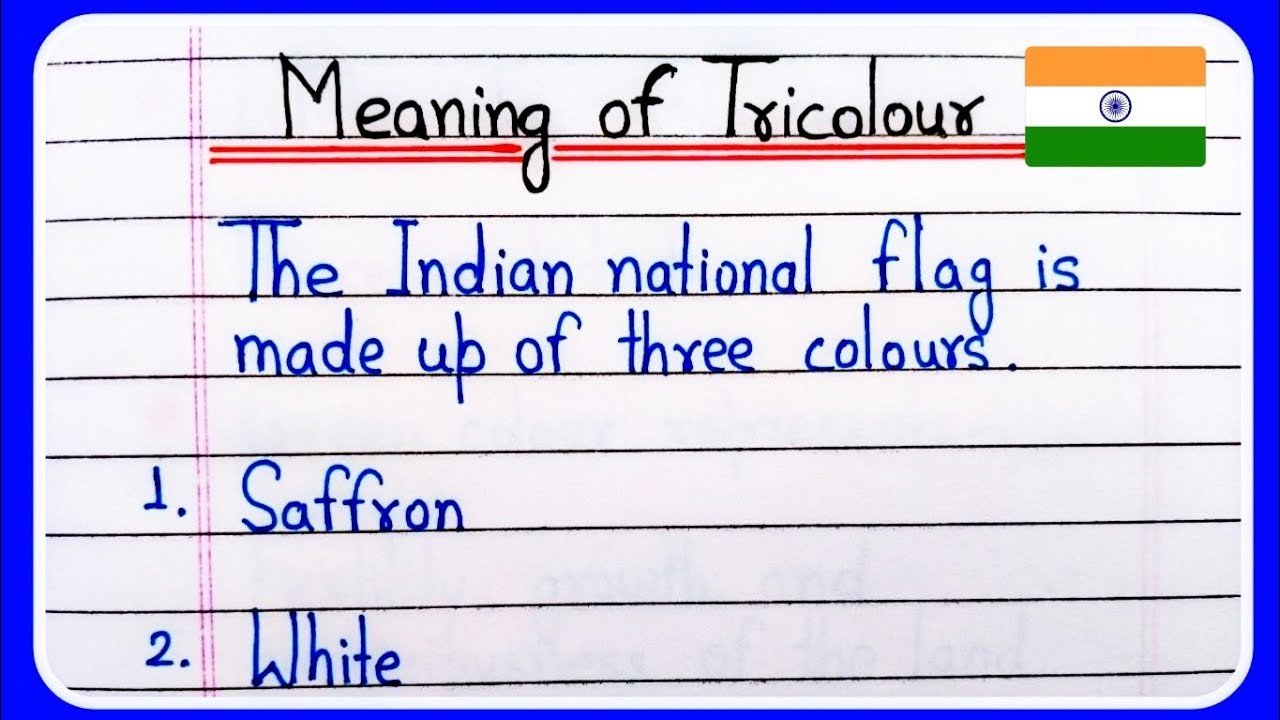 Meaning of Tricolour
The Indian national flag is
made up of three colours.
1. Saffron
2. White